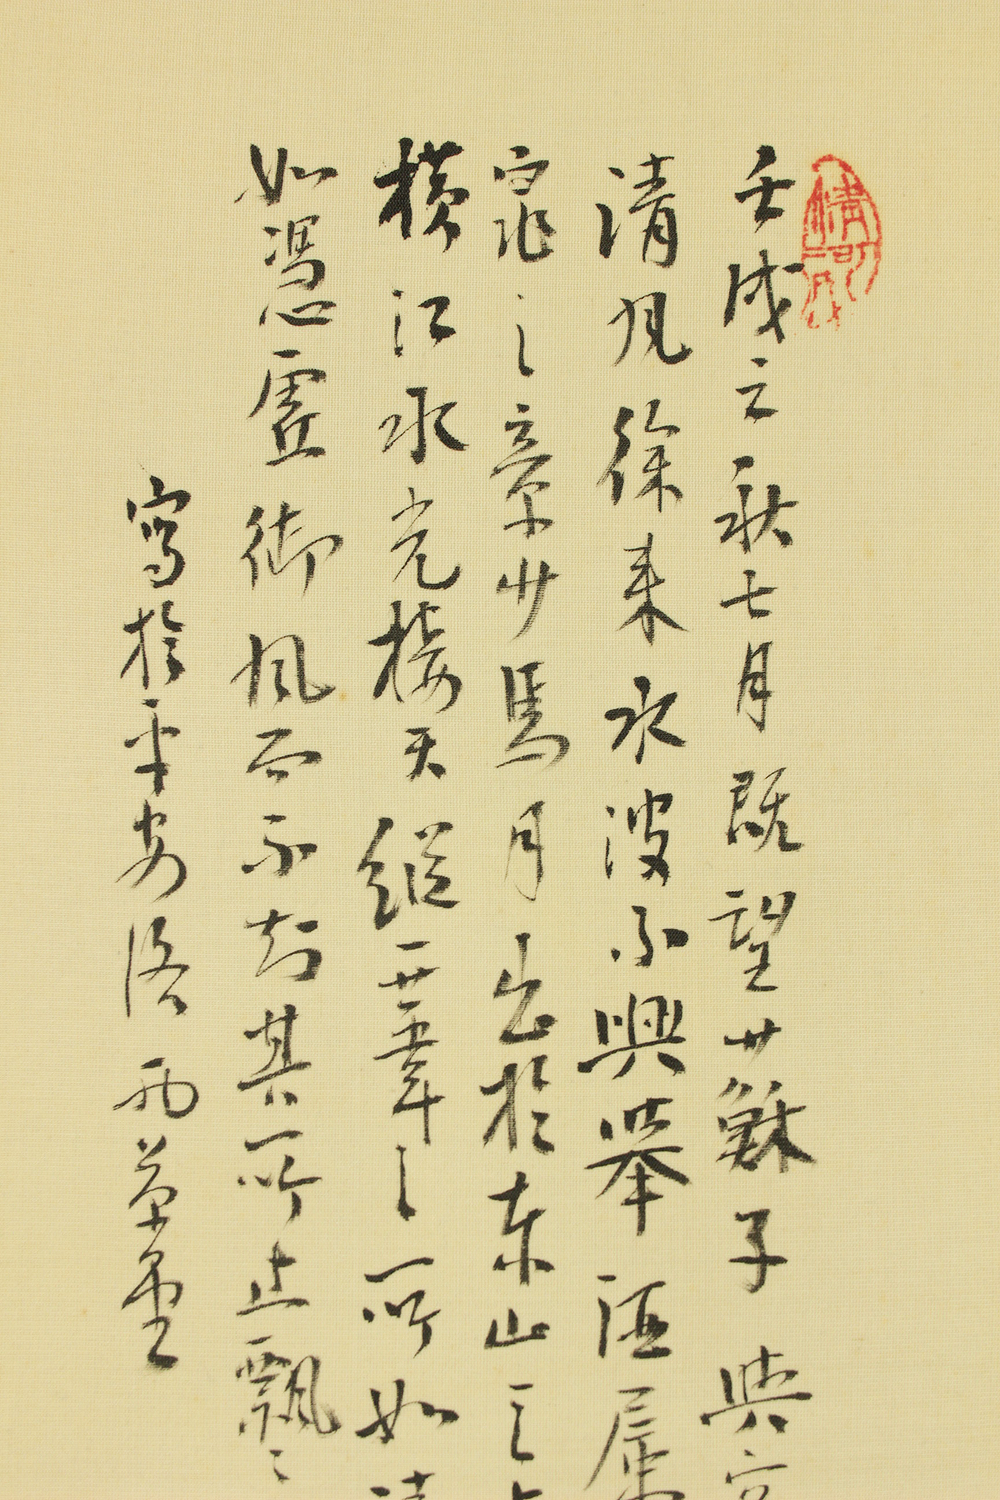 壬戌之秋七月既望廿蘇子與客
清風徐来水波不興舉酒屬
窕之章廿馬月出於東山之
横江水光接天縱一葦之所如
如馮虛御風而不知其所止飄〻
寫於平安洛西草堂